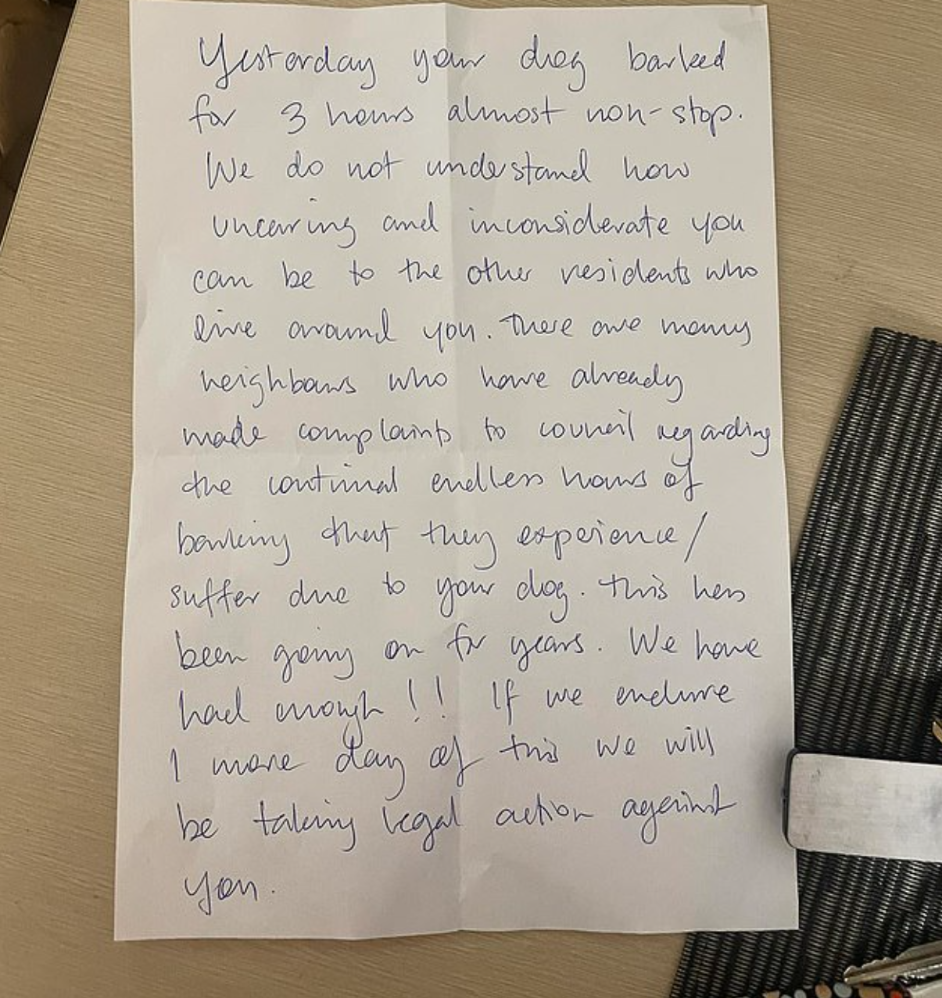 Yesterday your dog barked
for 3 hours almost non-stop.
We do not understand how
uncaring and inconsiderate you
can be to the other residents who
live around you. There are many
neighbours who have already
made complaints to council regarding
the continual endless hours of
barking that they experience/
suffer due to your dog. This has
been going on for years. We have
had enough!! If we endure
1 more day of this we will
be taking legal action against
you.